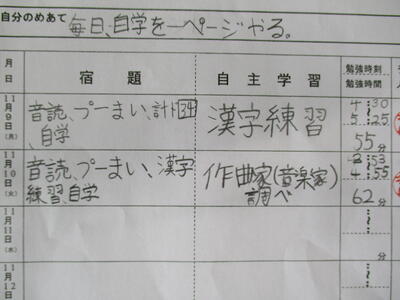 自分のめあて 毎日、自学を一ページやる。
月日 宿題 自主学習 勉強時刻 勉強時間
11月9日(月) 音読、プーまい、計ド、自学 漢字練習 4:30 5:25 55分
11月10日(火) 音読、プーまい、漢字練習、自学 作曲家(音楽家)調べ 3:53 4:55 62分
11月11日(水) 分
11月12